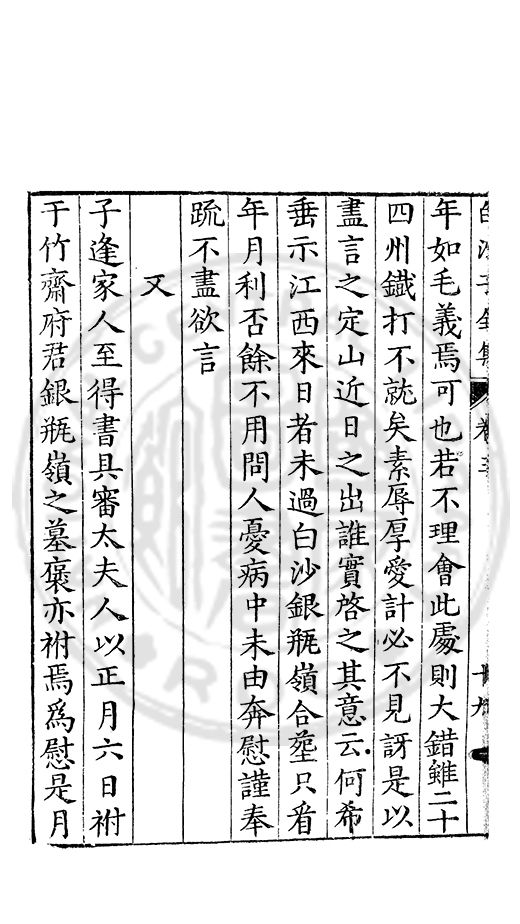 白沙子全集 卷三 十九
年如毛義焉可也若不理會此處則大錯雖二十
四州鐵打不就矣素辱厚愛計必不見訝是以
盡言之定山近日之出誰實啓之其意云何希
垂示江西來日者未過白沙銀瓶嶺合塟只看
年月利否餘不用問人憂病中未由奔慰謹奉
疏不盡欲言
又
子逢家人至得書具審太夫人以正月六日祔
于竹齋府君銀瓶嶺之墓褒亦祔焉爲慰是月